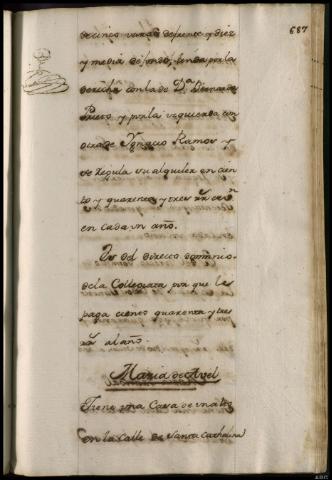 687
de cinco varas de frente y diez
y media de fondo, linda por la
derecha con la de Dª Bernarda
y por la izquierda con
otra de Ygnacio Ramos y
se regula su alquiler en cien
to y quarenta y tres rrˢ de vⁿ
en cada un año.
Es del directo dominio
de la Collegiata por que le
paga ciento quarenta y tres
rrˢ al año.
Maria de Abel
Tiene una Casa de un alto
en la Calle de Santa Cathalina